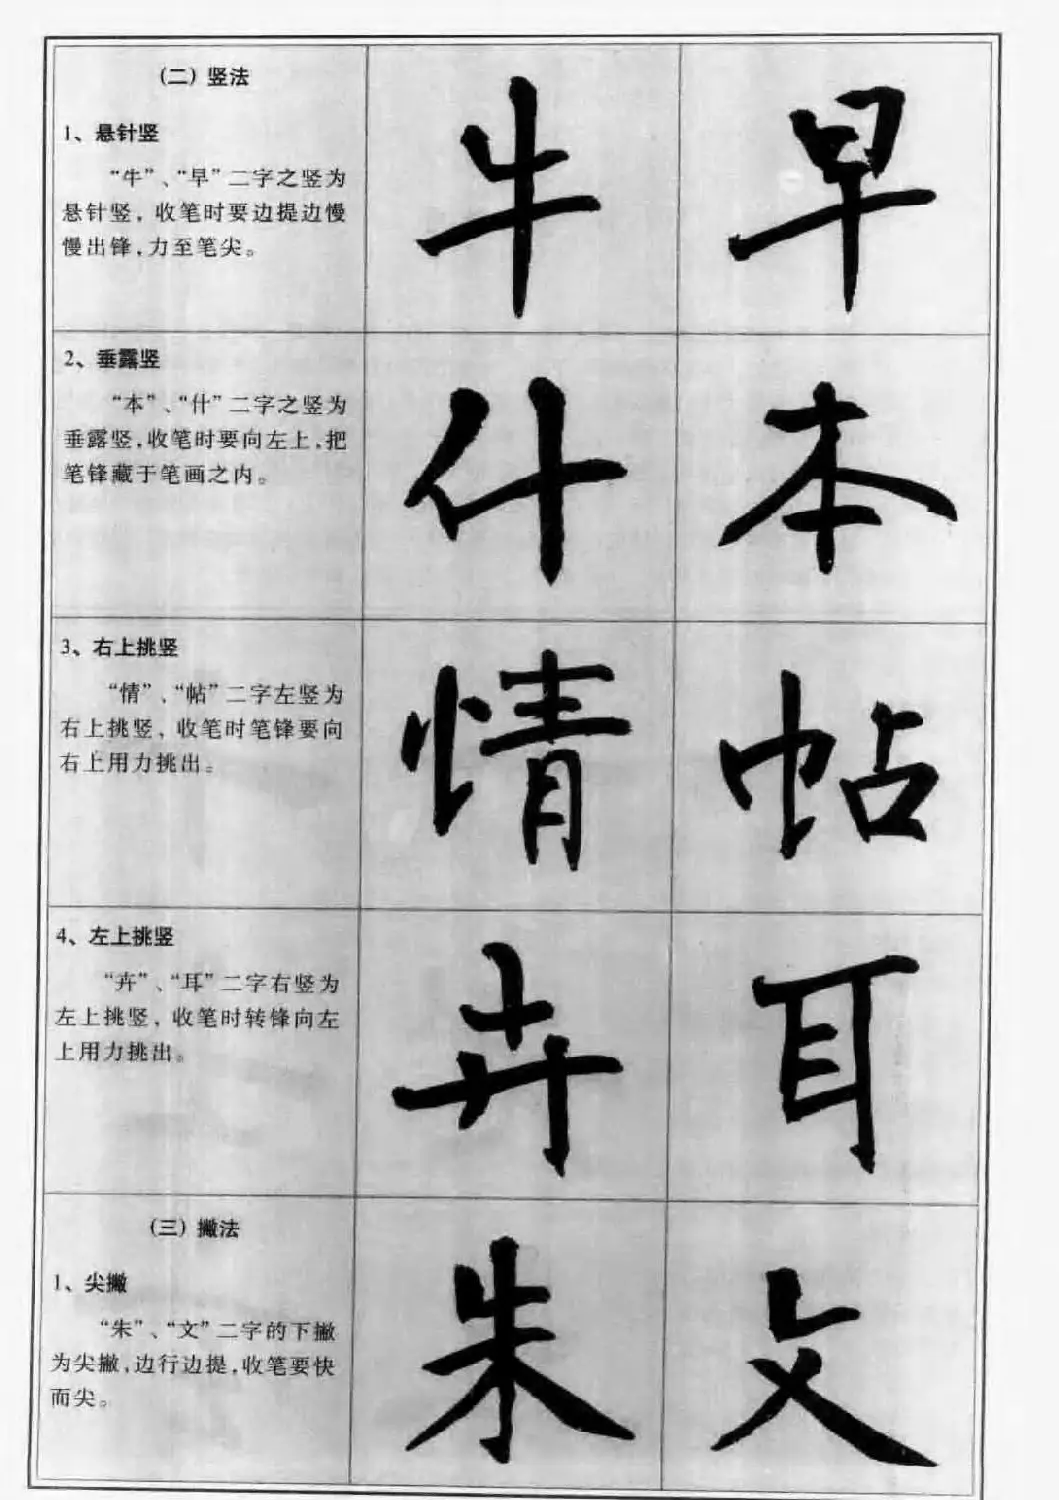 （二）竖法
1、悬针竖
“牛”、“早”二字之竖为
悬针竖，收笔时要边提边慢
慢出锋，力至笔尖。
牛 早
2、垂露竖
“本”、“什”二字之竖为
垂露竖，收笔时要向左上，把
笔锋藏于笔画之内。
什 本
3、右上挑竖
“情”、“帖”二字左竖为
右上挑竖，收笔时笔锋要向
右上用力挑出。
情 帖
4、左上挑竖
“卉”、“耳”二字右竖为
左上挑竖，收笔时转锋向左
上用力挑出。
卉 耳
（三）撇法
1、尖撇
“朱”、“文”二字的下撇
为尖撇，边行边提，收笔要快
而尖。
朱 文